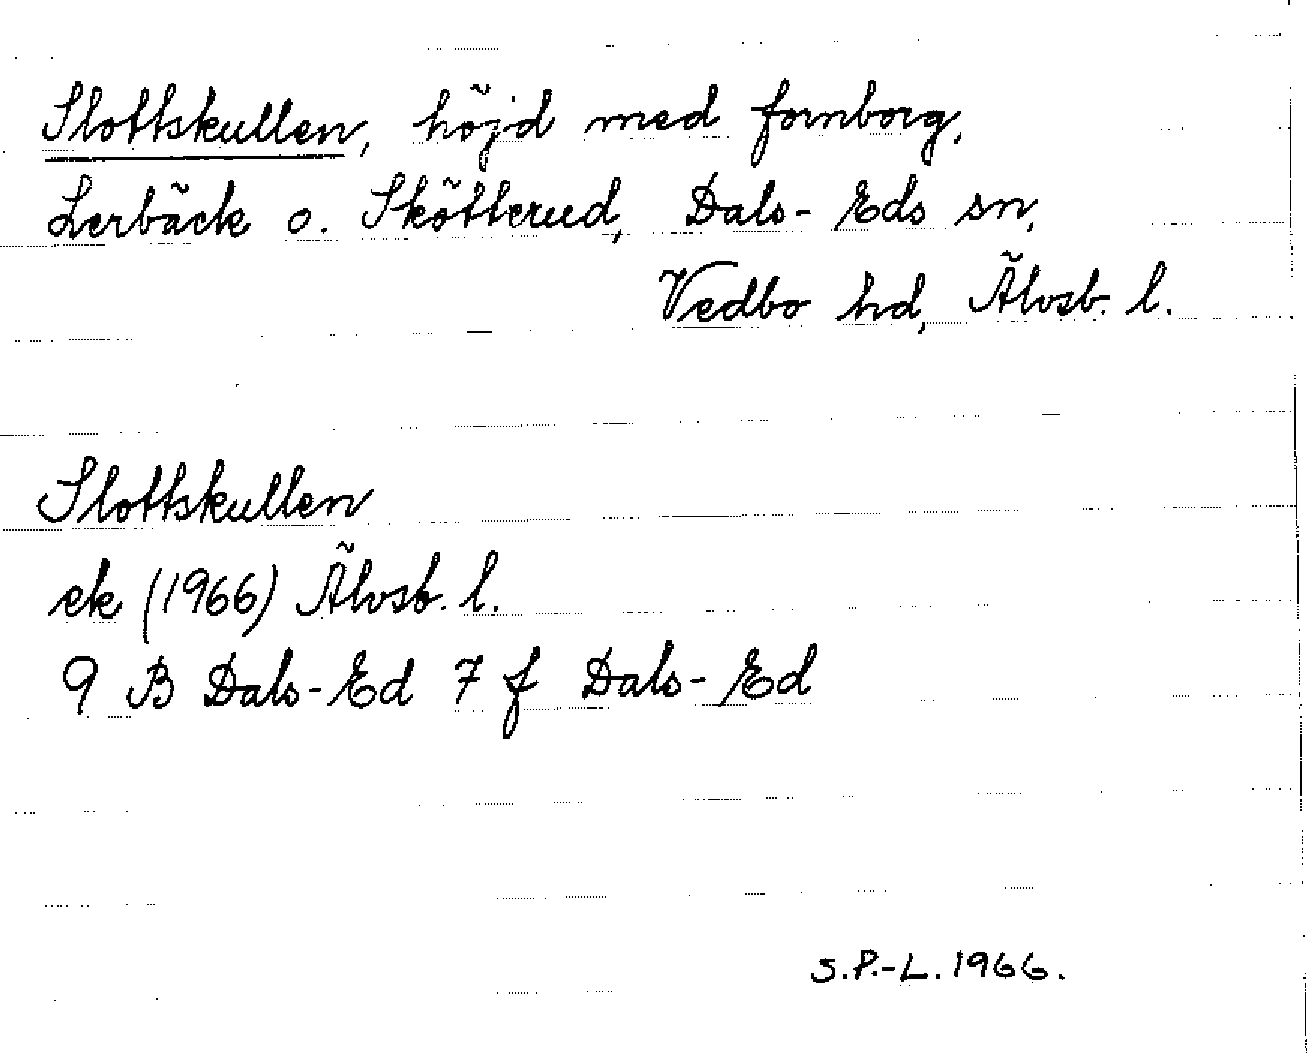 Slottskullen, höjd med fornborg,
Lerbäck o. Skötterud, Dals-Eds sn,
Vedbo hd, Älvsb. l.
Slottskullen
ek (1966) Älvsb. l.
9 B Dals-Ed 7 f Dals-Ed
S.P.-L. 1966.